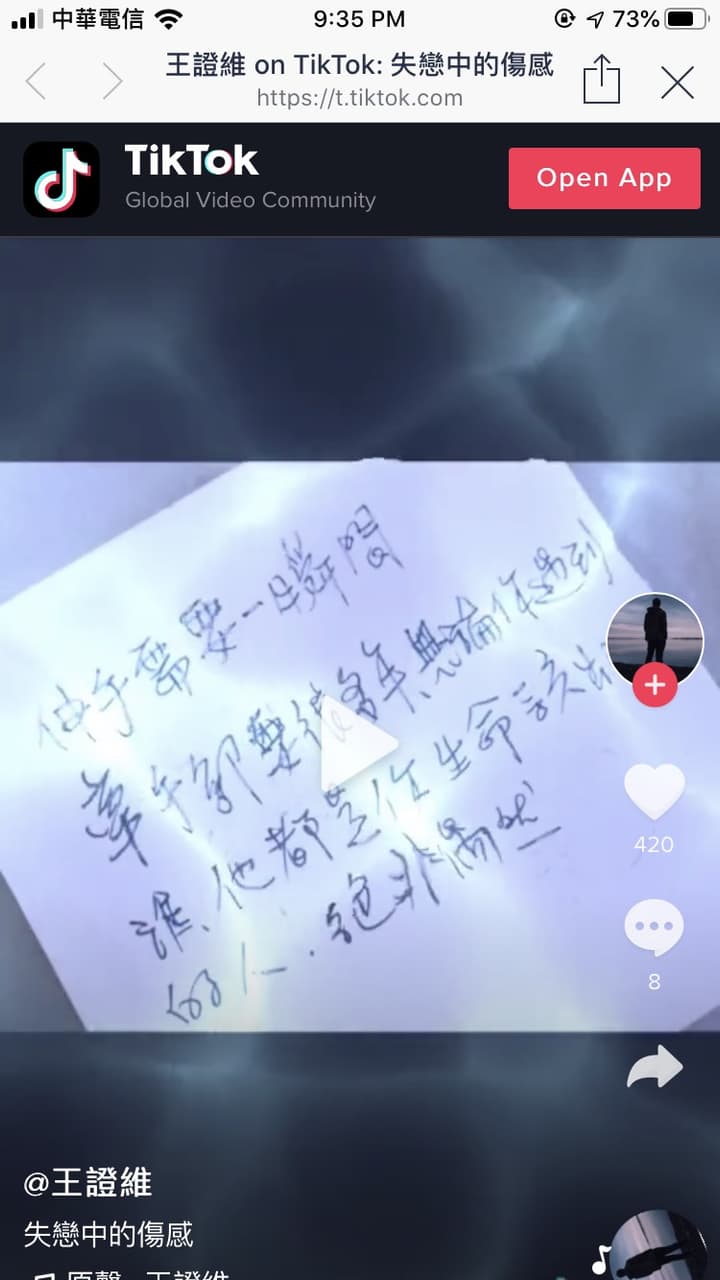 中華電信
9:35 PM
73%
王證維 on TikTok: 失戀中的傷感
https://t.tiktok.com
TikTok
Global Video Community
Open App
伸手需要一瞬間
牽手卻要很多年無論你遇到
誰、他都是你生命該出
的人.絕非偶然
420
8
@王證維
失戀中的傷感
原聲 王證維